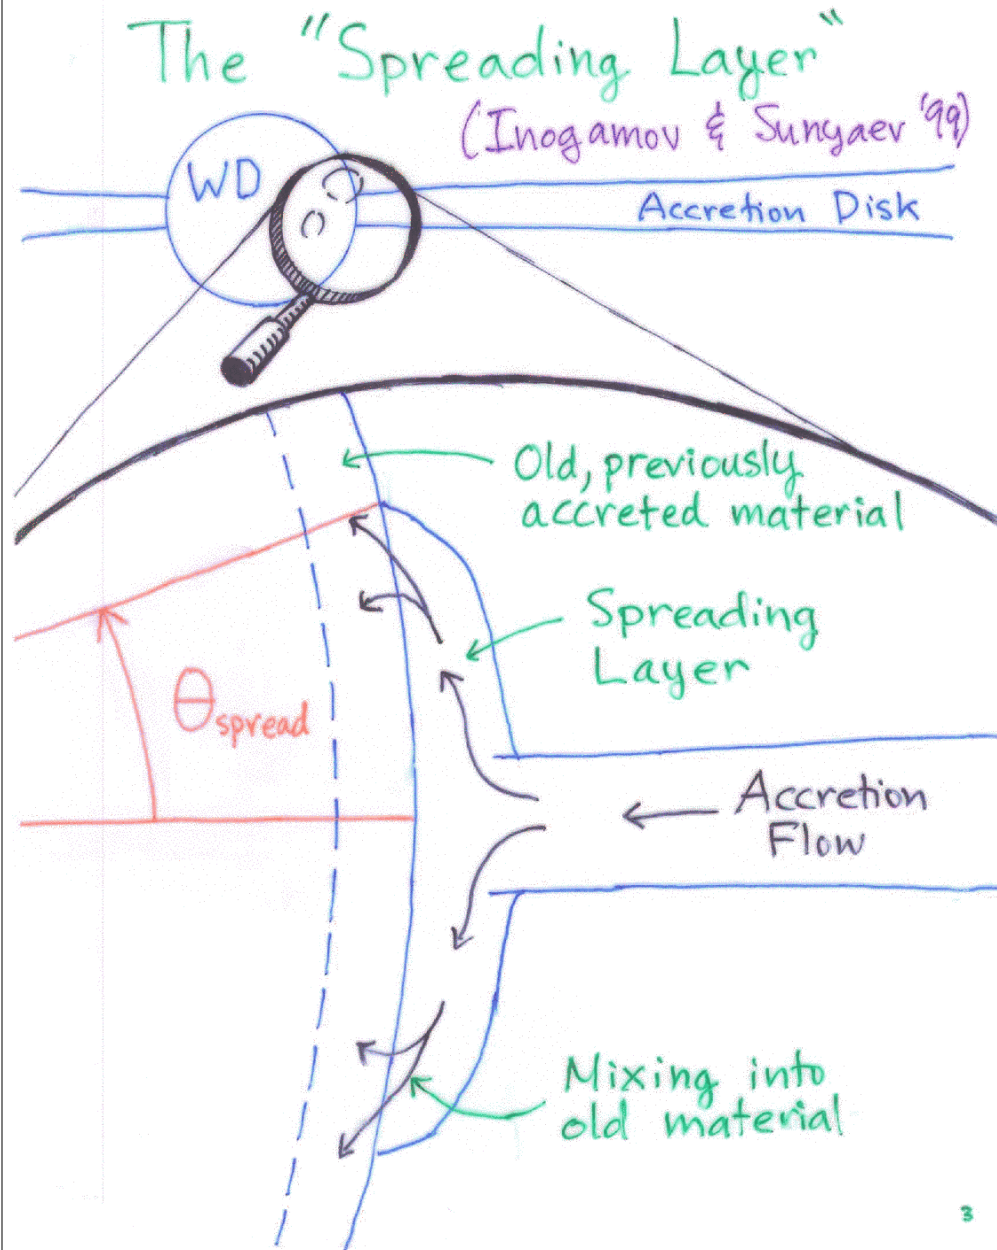 The "Spreading Layer"
(Inogamov & Sunyaev '99)
WD
Accretion Disk
Old, previously
accreted material
Spreading
Layer
θspread
Accretion
Flow
Mixing into
old material
3